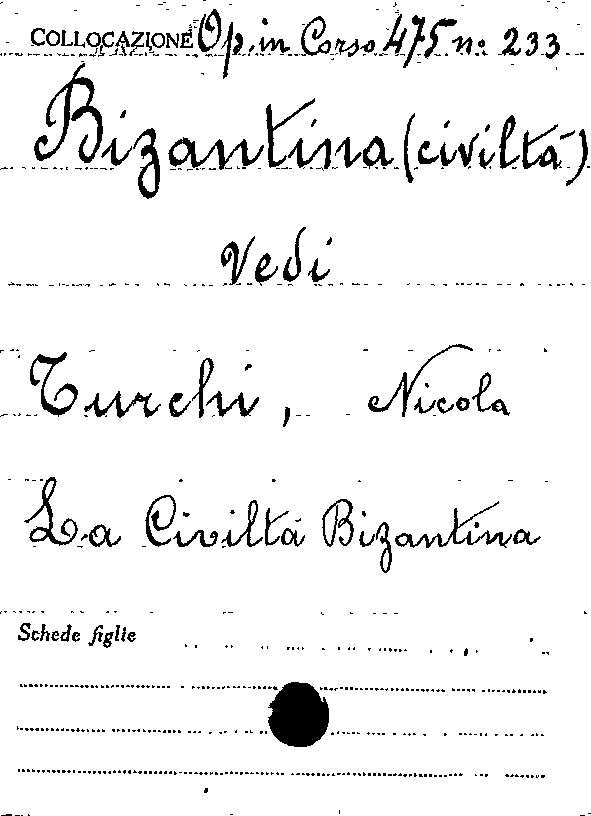 COLLOCAZIONE Op. in Corso 475 n. 233
Bizantina (civiltà)
Vedi
Turchi, Nicola
La Civiltà Bizantina
Schede figlie